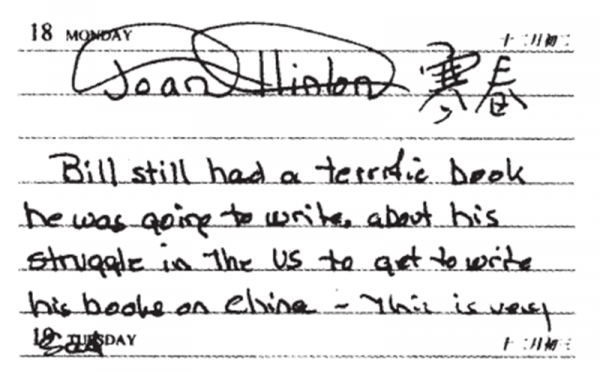 18 MONDAY 十二月初二
Joan Hinton 寒春
Bill still had a terrific book
he was going to write, about his
struggle in the US to get to write
his books on China - This is very
19 TUESDAY 十二月初三
sad